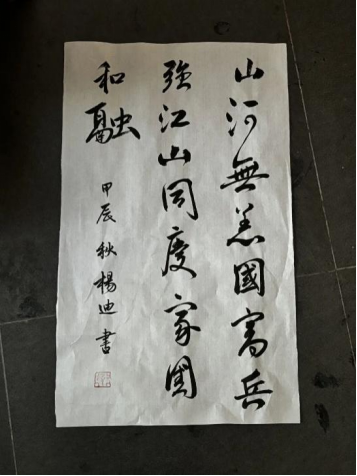 山河無恙國富兵
強江山同慶家國
和融
甲辰秋楊迪書